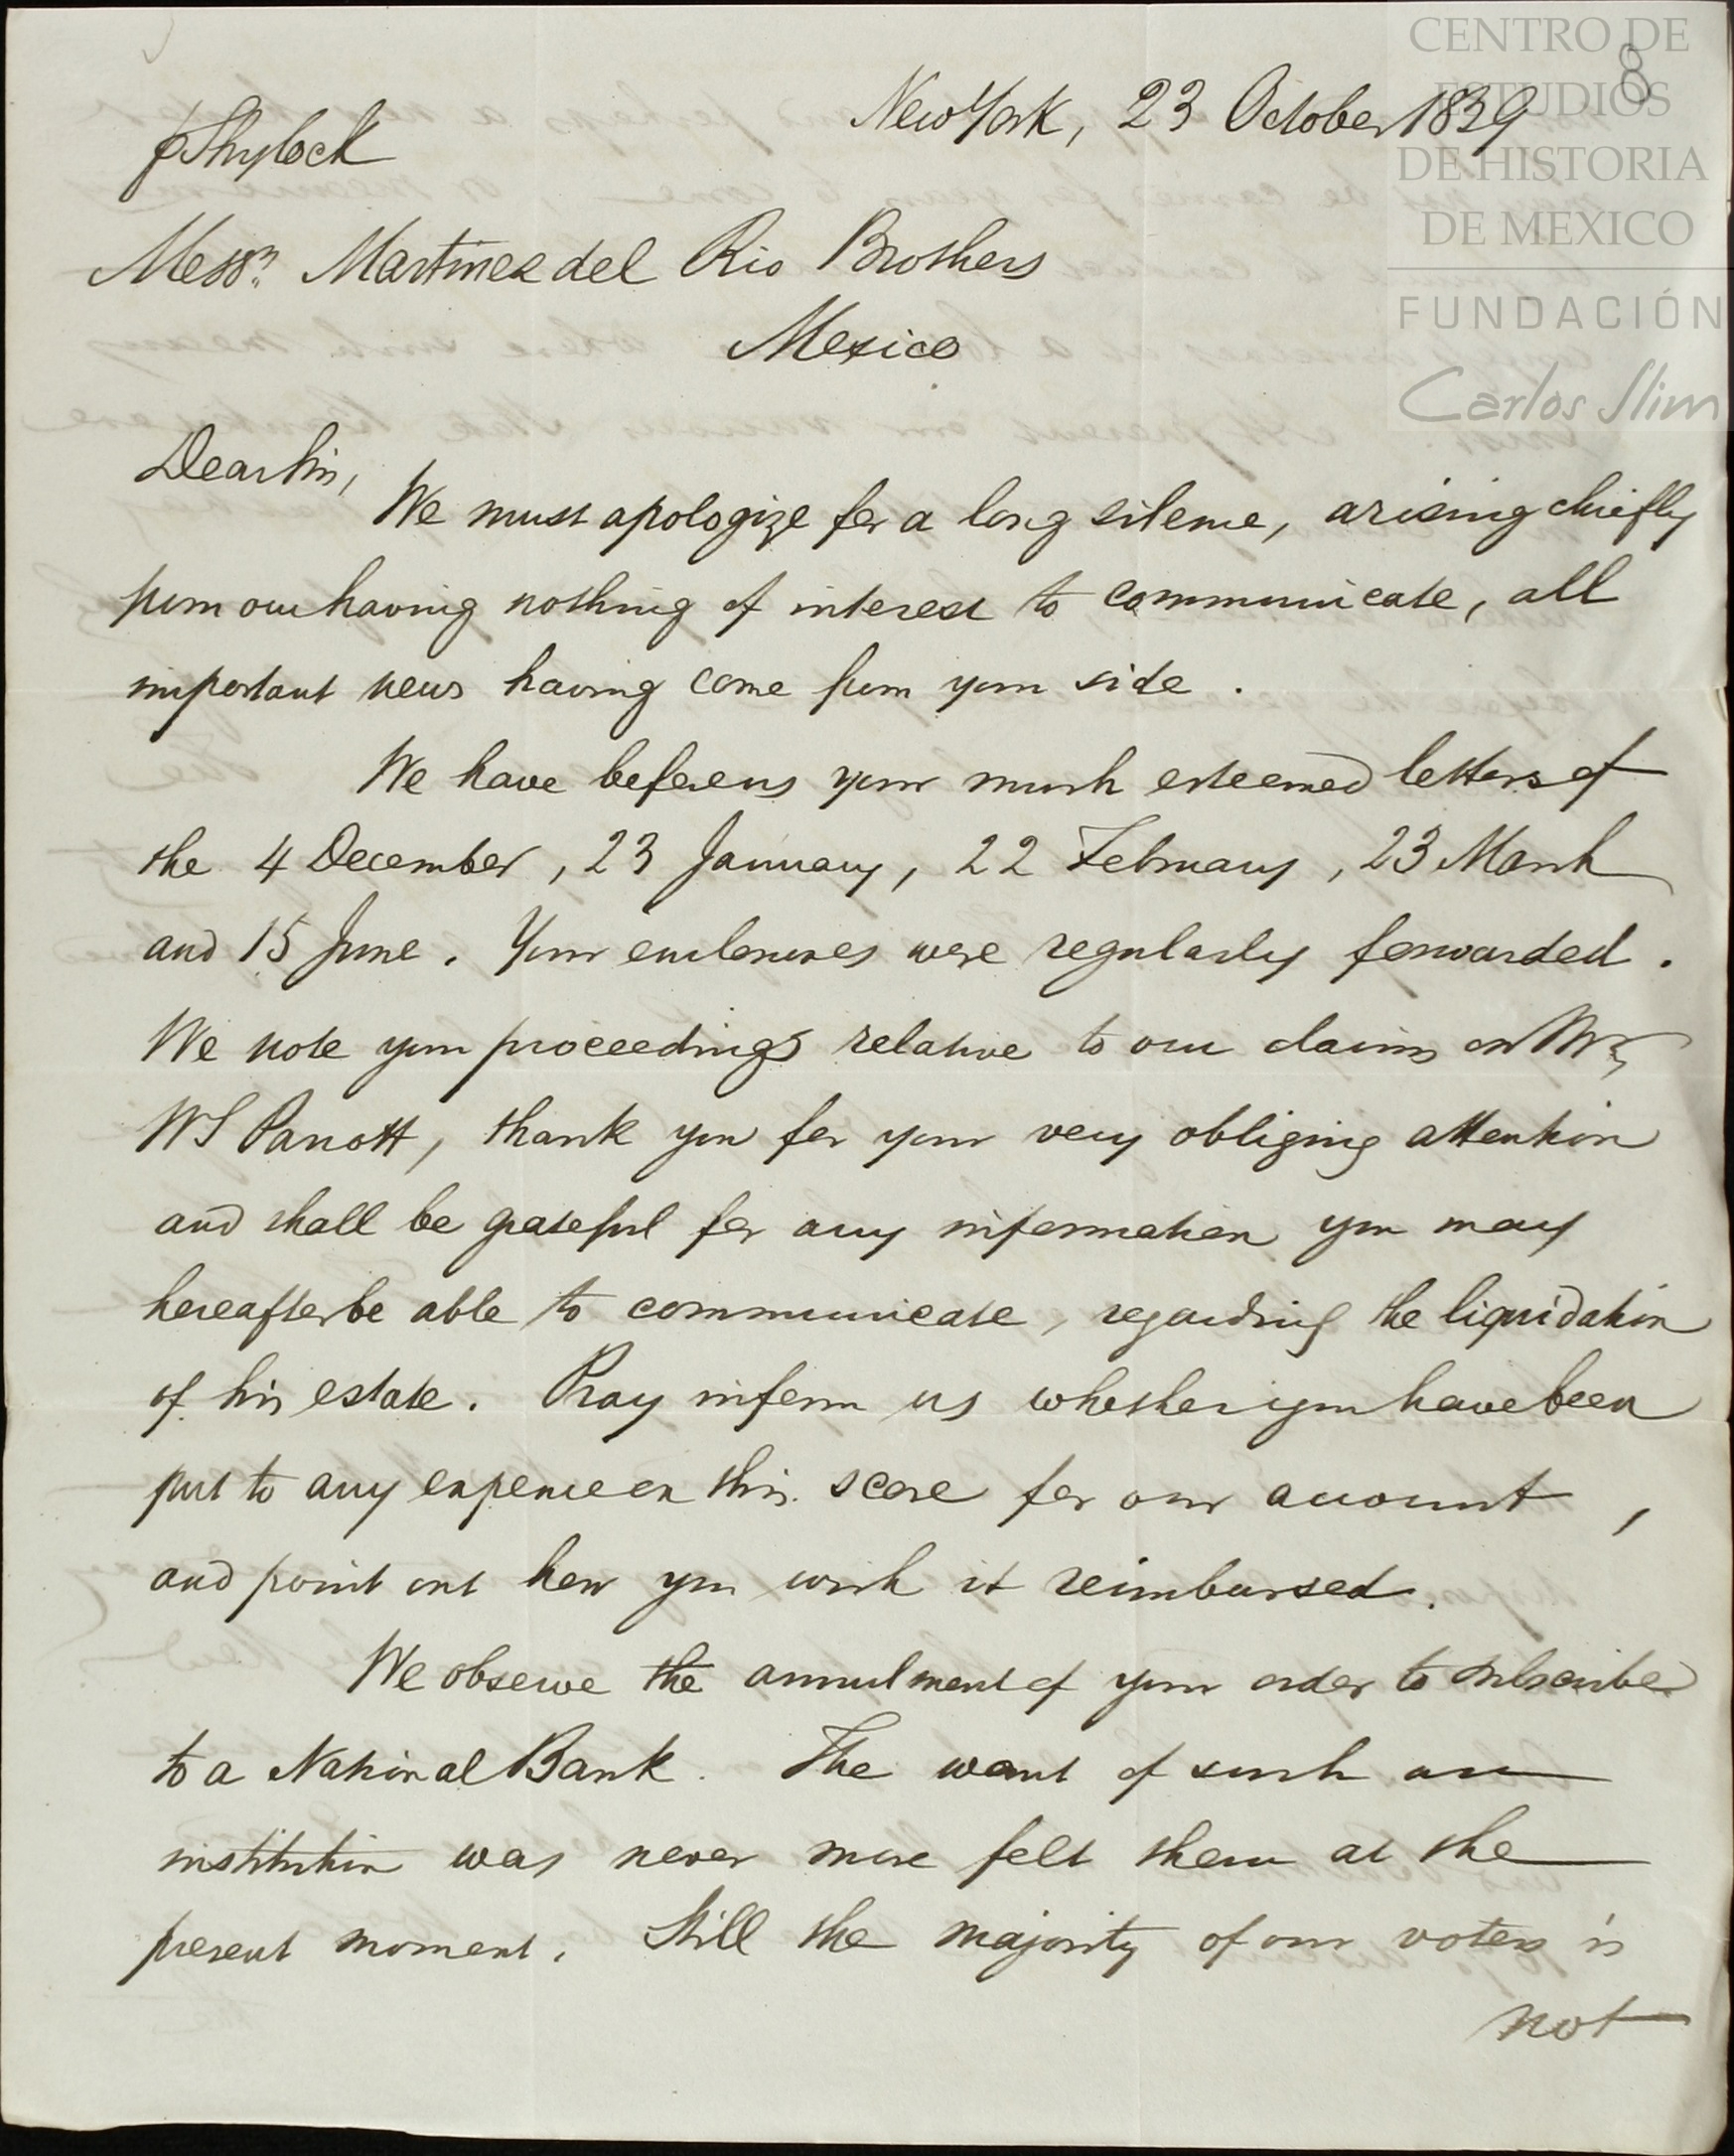 CENTRO DE
ESTUDIOS
DE HISTORIA
DE MEXICO
FUNDACIÓN
Carlos Slim
8
New York, 23 October 1839
p Shylock
Messrs Martinez del Rio Brothers
Mexico
Dear Sirs,
We must apologize for a long silence, arising chiefly
from our having nothing of interest to communicate, all
important news having come from your side.
We have before us your much esteemed letters of
the 4 December, 23 January, 22 February, 23 March
and 15 June. Your enclosures were regularly forwarded.
We note your proceedings relative to our claims on Mr
WS Parrott, thank you for your very obliging attention
and shall be grateful for any information you may
hereafter be able to communicate, regarding the liquidation
of his estate. Pray inform us whether you have been
put to any expence on this score for our account,
and point out how you wish it reimbursed.
We observe the annulment of your order to subscribe
to a National Bank. The want of such an
institution was never more felt then at the
present moment. Still the majority of our voters is
not